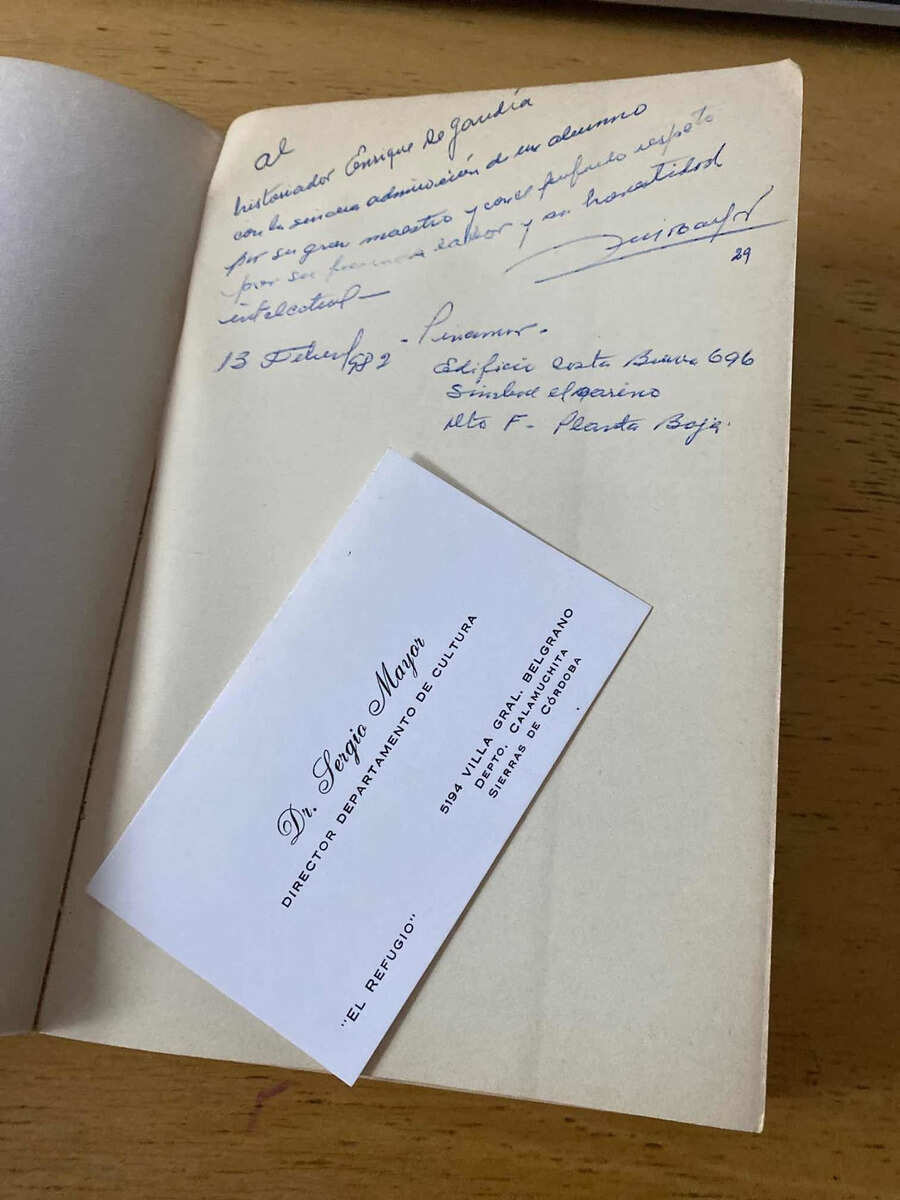 al
historiador Enrique de Gandía
con la sincera admiración de un alumno
por su gran maestro y con el profundo respeto
por su fecunda labor y su honestidad
intelectual —
29
13 Feber/982 - Pinamar -
Edificio Costa Brava 696
Simbad el marino
Dto F - Planta Baja
Dr. Sergio Mayor
DIRECTOR DEPARTAMENTO DE CULTURA
5194 VILLA GRAL. BELGRANO
DEPTO. CALAMUCHITA
SIERRAS DE CÓRDOBA
"EL REFUGIO"